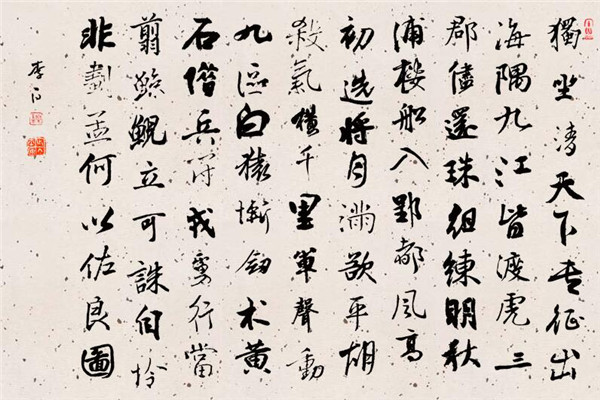 獨坐清天下专征出
海隅九江皆渡虎三
郡儘還珠組練明秋
浦樓船入郢都風高
初選將月滿欲平胡
殺氣橫千里軍聲動
九區白猿慚劍术黃
石借兵符戎虜行當
翦鯨鯢立可誅自怜
非劇孟何以佐良圖
李白